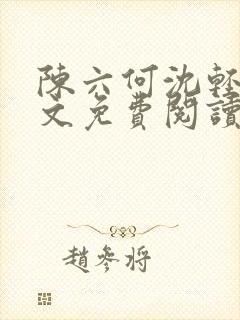 陳六何沈輕
文免費閱讀
趙參將